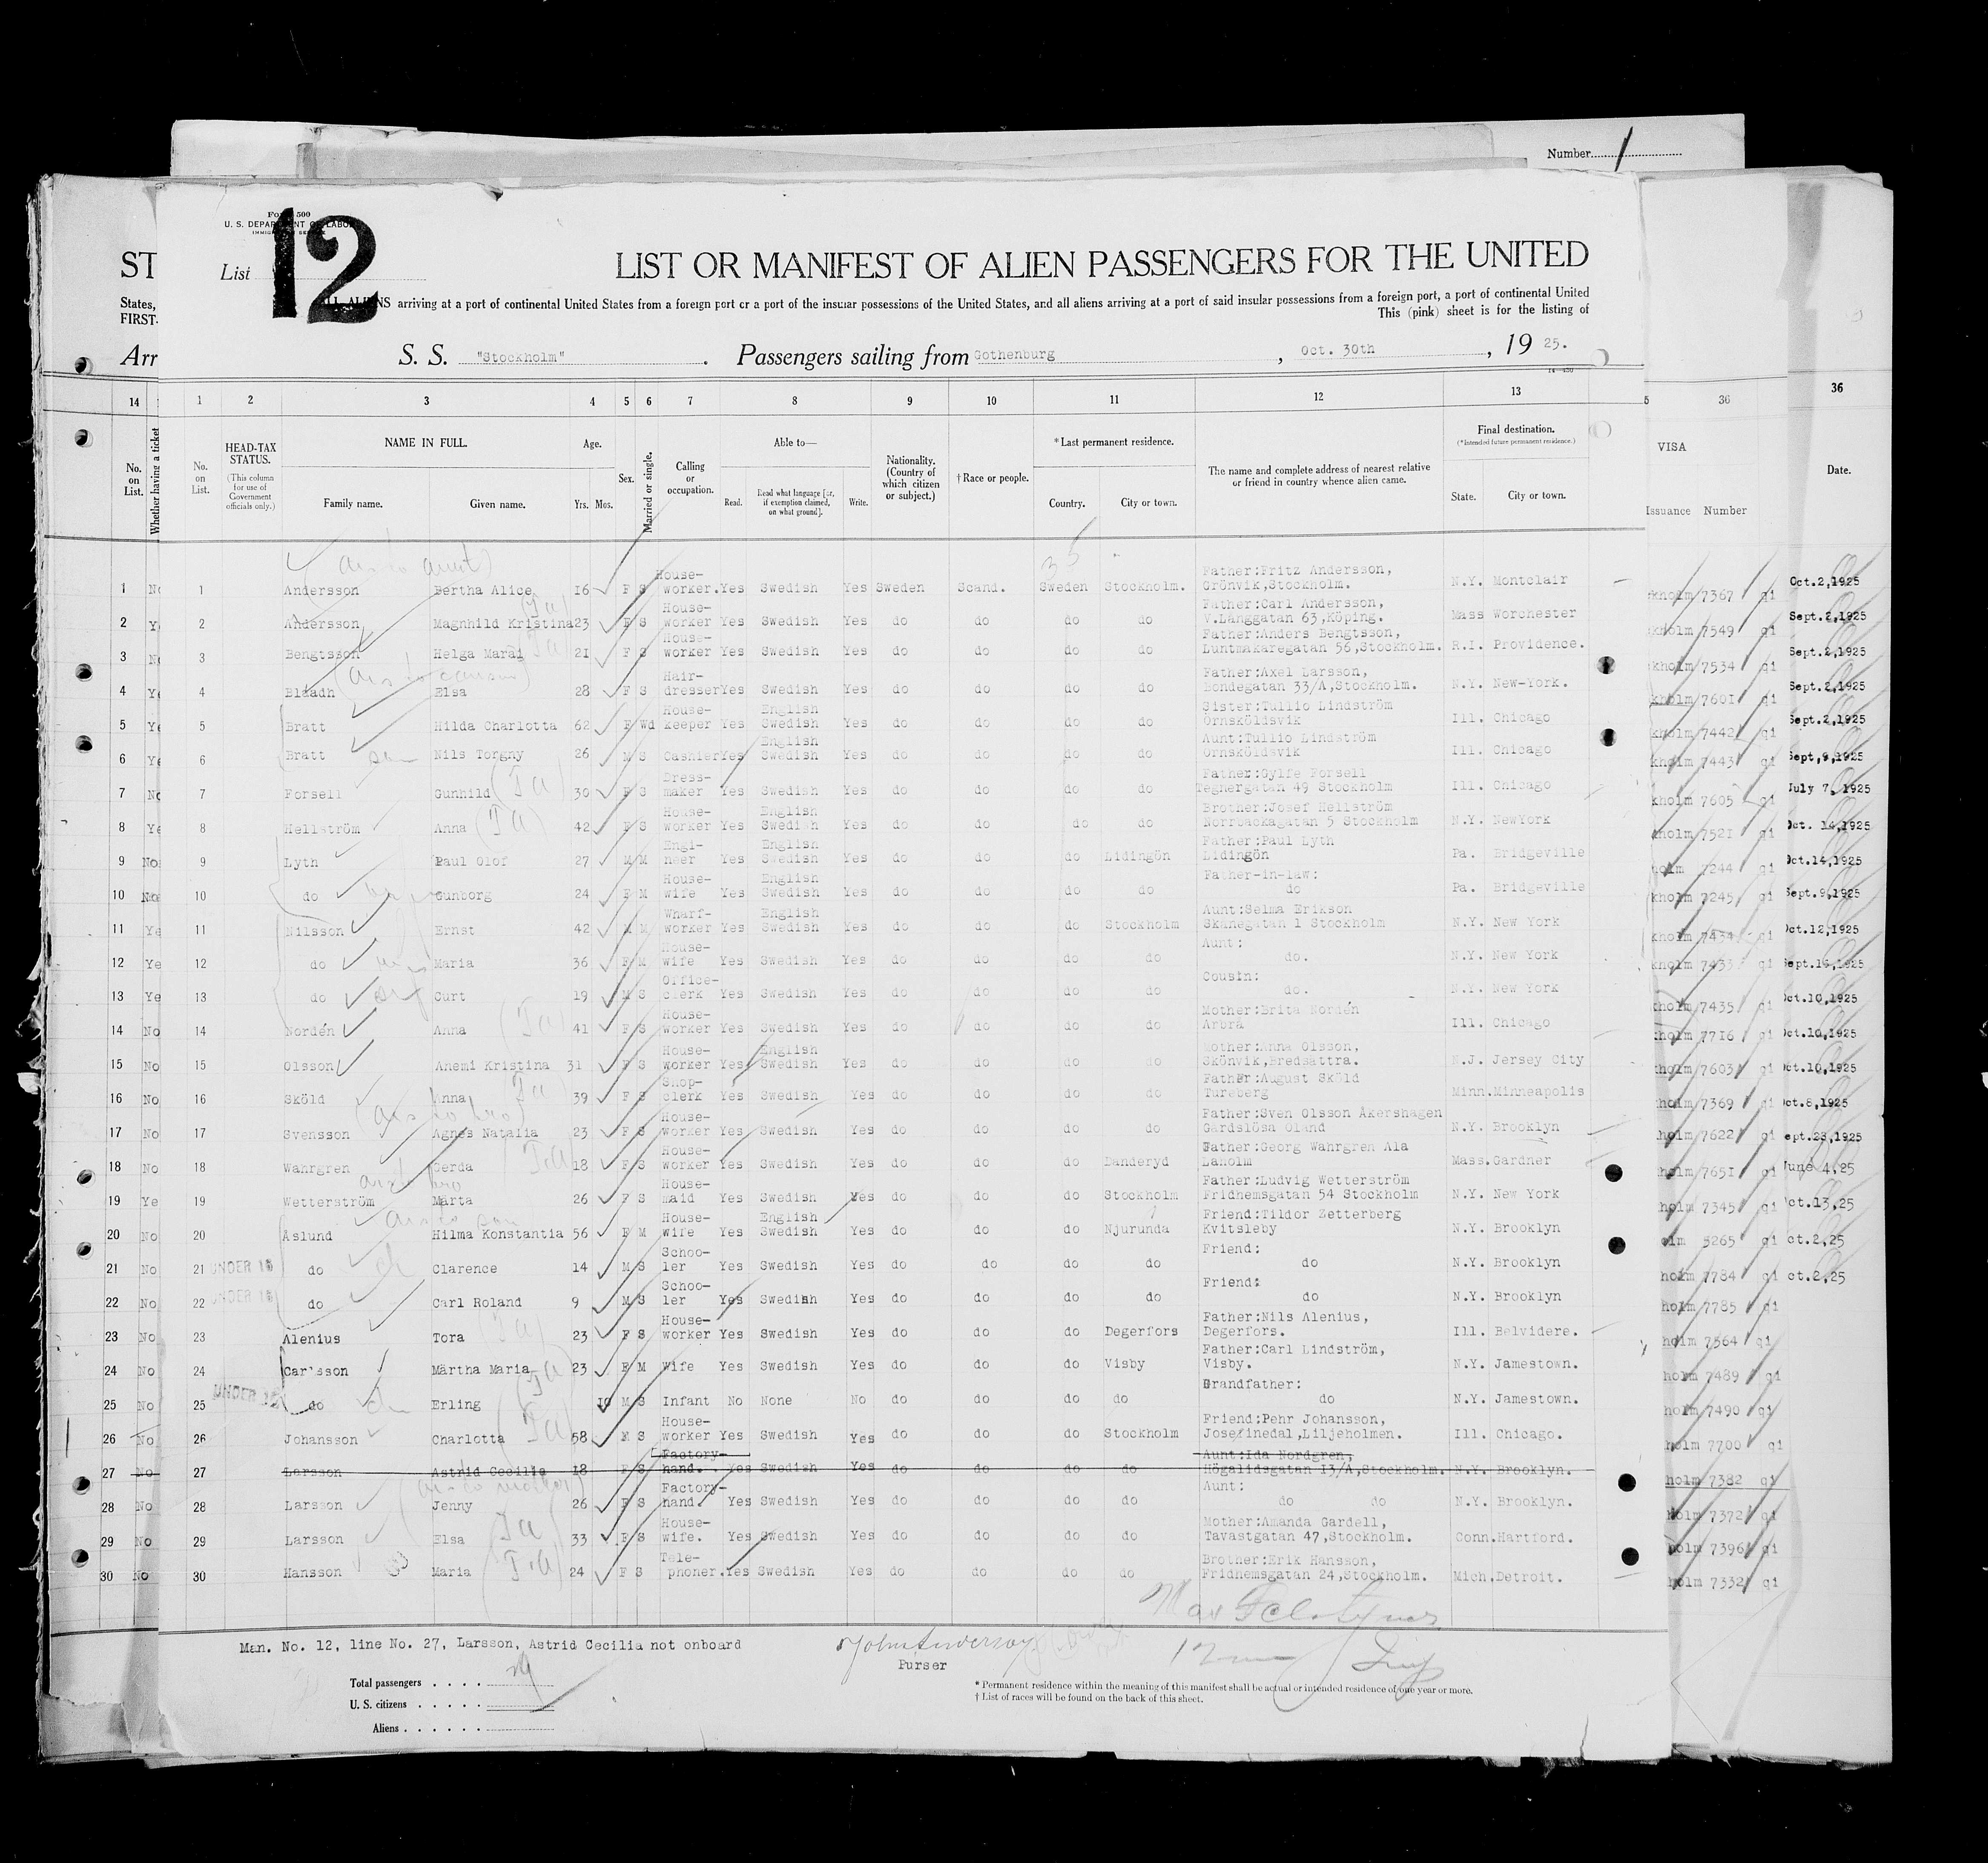 Number
Form 500
U. S. DEPARTMENT OF LABOR
IMMIGRATION SERVICE
List 12
ST
LIST OR MANIFEST OF ALIEN PASSENGERS FOR THE UNITED
States,
ALL ALIENS arriving at a port of continental United States from a foreign port or a port of the insular possessions of the United States, and all aliens arriving at a port of said insular possessions from a foreign port, a port of continental United
FIRST-
This (pink) sheet is for the listing of
Arr
S. S. "Stockholm". Passengers sailing from Gothenburg, Oct. 30th, 19 25.
14 1 2 3 4 5 6 7 8 9 10 11 12 13 36 36
No. on List. Whether having a ticket No. on List. HEAD-TAX STATUS. (This column for use of Government officials only.) NAME IN FULL. Family name. Given name. Age. Yrs. Mos. Sex. Married or single. Calling or occupation. Able to— Read. Read what language [or, if exemption claimed, on what ground]. Write. Nationality. (Country of which citizen or subject.) † Race or people. * Last permanent residence. Country. City or town. The name and complete address of nearest relative or friend in country whence alien came. Final destination. (* Intended future permanent residence.) State. City or town. VISA Issuance Number Date.
1 No 1 Andersson Bertha Alice 16 F S House-worker. Yes Swedish Yes Sweden Scand. Sweden Stockholm. Father:Fritz Andersson, Grönvik,Stockholm. N.Y. Montclair kholm 7367 qi Oct.2,1925
2 Ye 2 Andersson Magnhild Kristina 23 F S House-worker Yes Swedish Yes do do do do Father:Carl Andersson, V.Långgatan 63,Köping. Mass Worchester kholm 7549 qi Sept.2,1925
3 No 3 Bengtsson Helga Marai 21 F S House-worker Yes Swedish Yes do do do do Father:Anders Bengtsson, Luntmakaregatan 56,Stockholm. R.I. Providence. kholm 7534 qi Sept.2,1925
4 Ye 4 Bladh Elsa 28 F S Hair-dresser Yes Swedish Yes do do do do Father:Axel Larsson, Bondegatan 33/A,Stockholm. N.Y. New-York. kholm 7601 qi Sept.2,1925
5 Ye 5 Bratt Hilda Charlotta 62 F Wd House-keeper Yes English Swedish Yes do do do do Sister:Tullio Lindström Örnsköldsvik Ill. Chicago kholm 7442 qi Sept.2,1925
6 Ye 6 Bratt son Nils Torgny 26 M S Cashier Yes English Swedish Yes do do do do Aunt:Tullio Lindström Örnsköldsvik Ill. Chicago kholm 7443 qi Sept,9,1925
7 No 7 Forsell Gunhild 30 F S Dress-maker Yes Swedish Yes do do do do Father:Gylfe Forsell Tegnergatan 49 Stockholm Ill. Chicago kholm 7605 qi July 7,1925
8 Ye 8 Hellström Anna 42 F S House-worker Yes English Swedish Yes do do do do Brother:Josef Hellström Norrbackagatan 5 Stockholm N.Y. NewYork kholm 7521 qi Oct. 14,1925
9 No 9 Lyth Paul Olof 27 M M Engi-neer Yes English Swedish Yes do do do Lidingön Father:Paul Lyth Lidingön Pa. Bridgeville holm 7244 qi Oct.14,1925
10 No 10 do Gunborg 24 F M House-wife Yes English Swedish Yes do do do do Father-in-law: do Pa. Bridgeville kholm 7245 qi Sept.9,1925
11 Ye 11 Nilsson Ernst 42 M M Wharf-worker Yes English Swedish Yes do do do Stockholm Aunt:Selma Erikson Skånegatan 1 Stockholm N.Y. New York kholm 7434 qi Oct.12,1925
12 Ye 12 do Maria 36 F M House-wife Yes Swedish Yes do do do do Aunt: do. N.Y. New York kholm 7433 qi Sept.14,1925
13 Ye 13 do Curt 19 M S Office-clerk Yes Swedish Yes do do do do Cousin: do. N.Y. New York kholm 7435 qi Oct.10,1925
14 No 14 Nordén Anna 41 F S House-worker Yes Swedish Yes do do do do Mother:Brita Nordén Arbrå Ill. Chicago holm 7716 qi Oct.10,1925
15 No 15 Olsson Anemi Kristina 31 F S House-worker Yes English Swedish Yes do do do do Mother:Anna Olsson, Skönvik,Bredsättra. N.J. Jersey City holm 7603 qi Oct.10,1925
16 No 16 Sköld Anna 39 F S Shop-clerk Yes Swedish Yes do do do do Father:August Sköld Tureberg Minn. Minneapolis holm 7369 qi Oct.8,1925
17 No 17 Svensson Agnes Natalia 23 F S House-worker Yes Swedish Yes do do do do Father:Sven Olsson Åkershagen Gårdslösa Öland N.Y. Brooklyn holm 7622 qi ept.23,1925
18 No 18 Wahrgren Gerda 18 F S House-worker Yes Swedish Yes do do do Danderyd Father:Georg Wahrgren Ala Laholm Mass. Gardner holm 7651 qi June 4,25
19 Ye 19 Wetterström Märta 26 F S House-maid Yes Swedish Yes do do do Stockholm Father:Ludvig Wetterström Fridhemsgatan 54 Stockholm N.Y. New York holm 7345 qi ct.13,25
20 No 20 Åslund Hilma Konstantia 56 F M House-wife Yes English Swedish Yes do do do Njurunda Friend:Tildor Zetterberg Kvitsleby N.Y. Brooklyn olm 5265 qi ct.2,25
21 No 21 UNDER 16 do Clarence 14 M S Schoo-ler Yes Swedish Yes do do do do Friend: do N.Y. Brooklyn holm 7784 qi ct.2,25
22 No 22 UNDER 16 do Carl Roland 9 M S Schoo-ler Yes Swedish Yes do do do do Friend: do N.Y. Brooklyn holm 7785 qi
23 No 23 Alenius Tora 23 F S House-worker Yes Swedish Yes do do do Degerfors Father:Nils Alenius, Degerfors. Ill. Belvidere. holm 7564 qi
24 No 24 Carlsson Märtha Maria 23 F M Wife Yes Swedish Yes do do do Visby Father:Carl Lindström, Visby. N.Y. Jamestown. holm 7489 qi
25 No 25 UNDER 16 do Erling 10 M S Infant No None No do do do do Grandfather: do N.Y. Jamestown. holm 7490 qi
26 No 26 Johansson Charlotta 58 M S House-worker Yes Swedish Yes do do do Stockholm Friend:Pehr Johansson, Josefinedal,Liljeholmen. Ill. Chicago. holm 7700 qi
27 No 27 Larsson Astrid Cecilia 18 F S Factory-hand. Yes Swedish Yes do do do do Aunt:Ida Nordgren, Högalidsgatan 13/A,Stockholm. N.Y. Brooklyn. holm 7382 qi
28 No 28 Larsson Jenny 26 F S Factory-hand. Yes Swedish Yes do do do do Aunt: do do N.Y. Brooklyn. holm 7372 qi
29 No 29 Larsson Elsa 33 F S House-wife. Yes Swedish Yes do do do do Mother:Amanda Gardell, Tavastgatan 47,Stockholm. Conn. Hartford. holm 7396 qi
30 No 30 Hansson Maria 24 F S Tele-phoner. Yes Swedish Yes do do do do Brother:Erik Hansson, Fridhemsgatan 24,Stockholm. Mich. Detroit. holm 7332 qi
Man. No. 12, line No. 27, Larsson, Astrid Cecilia not onboard
John Anderson
Purser
Total passengers
U. S. citizens
Aliens
* Permanent residence within the meaning of this manifest shall be actual or intended residence of one year or more.
† List of races will be found on the back of this sheet.